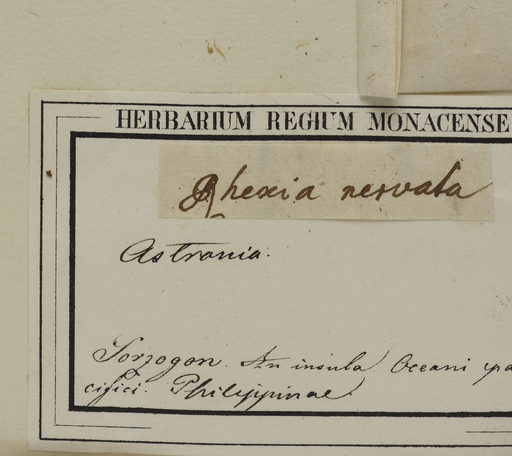 HERBARIUM REGIUM MONACENSE
Rhexia nervata
Astronia.
Sorzogon. In insula Oceani pa
cifici. Philippinae.